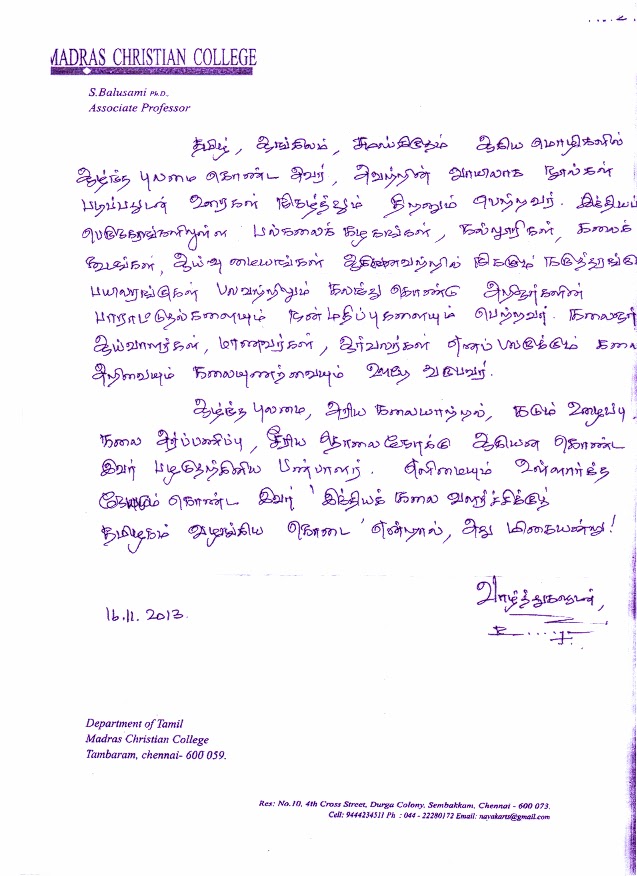 MADRAS CHRISTIAN COLLEGE
S.Balusami Ph.D.,
Associate Professor
தமிழ், ஆங்கிலம், சமஸ்கிருதம் ஆகிய மொழிகளில்
ஆழ்ந்த புலமை கொண்ட அவர், அவற்றின் வாயிலாக நூல்கள்
படிப்பதுடன் உரைகள் நிகழ்த்தும் திறனும் பெற்றவர். இந்திய
பெருநகரங்களிலுள்ள பல்கலைக் கழகங்கள், கல்லூரிகள், கலைக்
கூடங்கள், ஆய்வு மையங்கள் ஆகியவற்றில் நிகழும் கருத்தரங்கு
பயிலரங்குகள் பலவற்றிலும் கலந்து கொண்டு அறிஞர்களின்
பாராட்டுதல்களையும் நன்மதிப்புகளையும் பெற்றவர். கலைஞர்
ஆய்வாளர்கள், மாணவர்கள், ஆர்வலர்கள் எனப் பலருக்கும் கலை
அறிவையும் கலையுணர்வையும் ஊட்டி வருபவர்.
ஆழ்ந்த புலமை, அரிய கலையாற்றல், கடும் உழைப்பு,
கலை அர்ப்பணிப்பு, சீரிய தொலைநோக்கு ஆகியன கொண்ட
இவர் பழகுதற்கினிய பண்பாளர். எளிமையும் உள்ளார்ந்த
கொண்ட இவர் 'இந்தியக் கலை வளர்ச்சிக்குத்
தமிழகம் வழங்கிய கொடை' என்றால், அது மிகையன்று!
வாழ்த்துகளுடன்,
16.11.2013.
Department of Tamil
Madras Christian College
Tambaram, chennai- 600 059.
Res: No.10, 4th Cross Street, Durga Colony, Sembakkam, Chennai - 600 073.
Cell: 9444234511 Ph : 044 - 22280172 Email: nayakarts@gmail.com